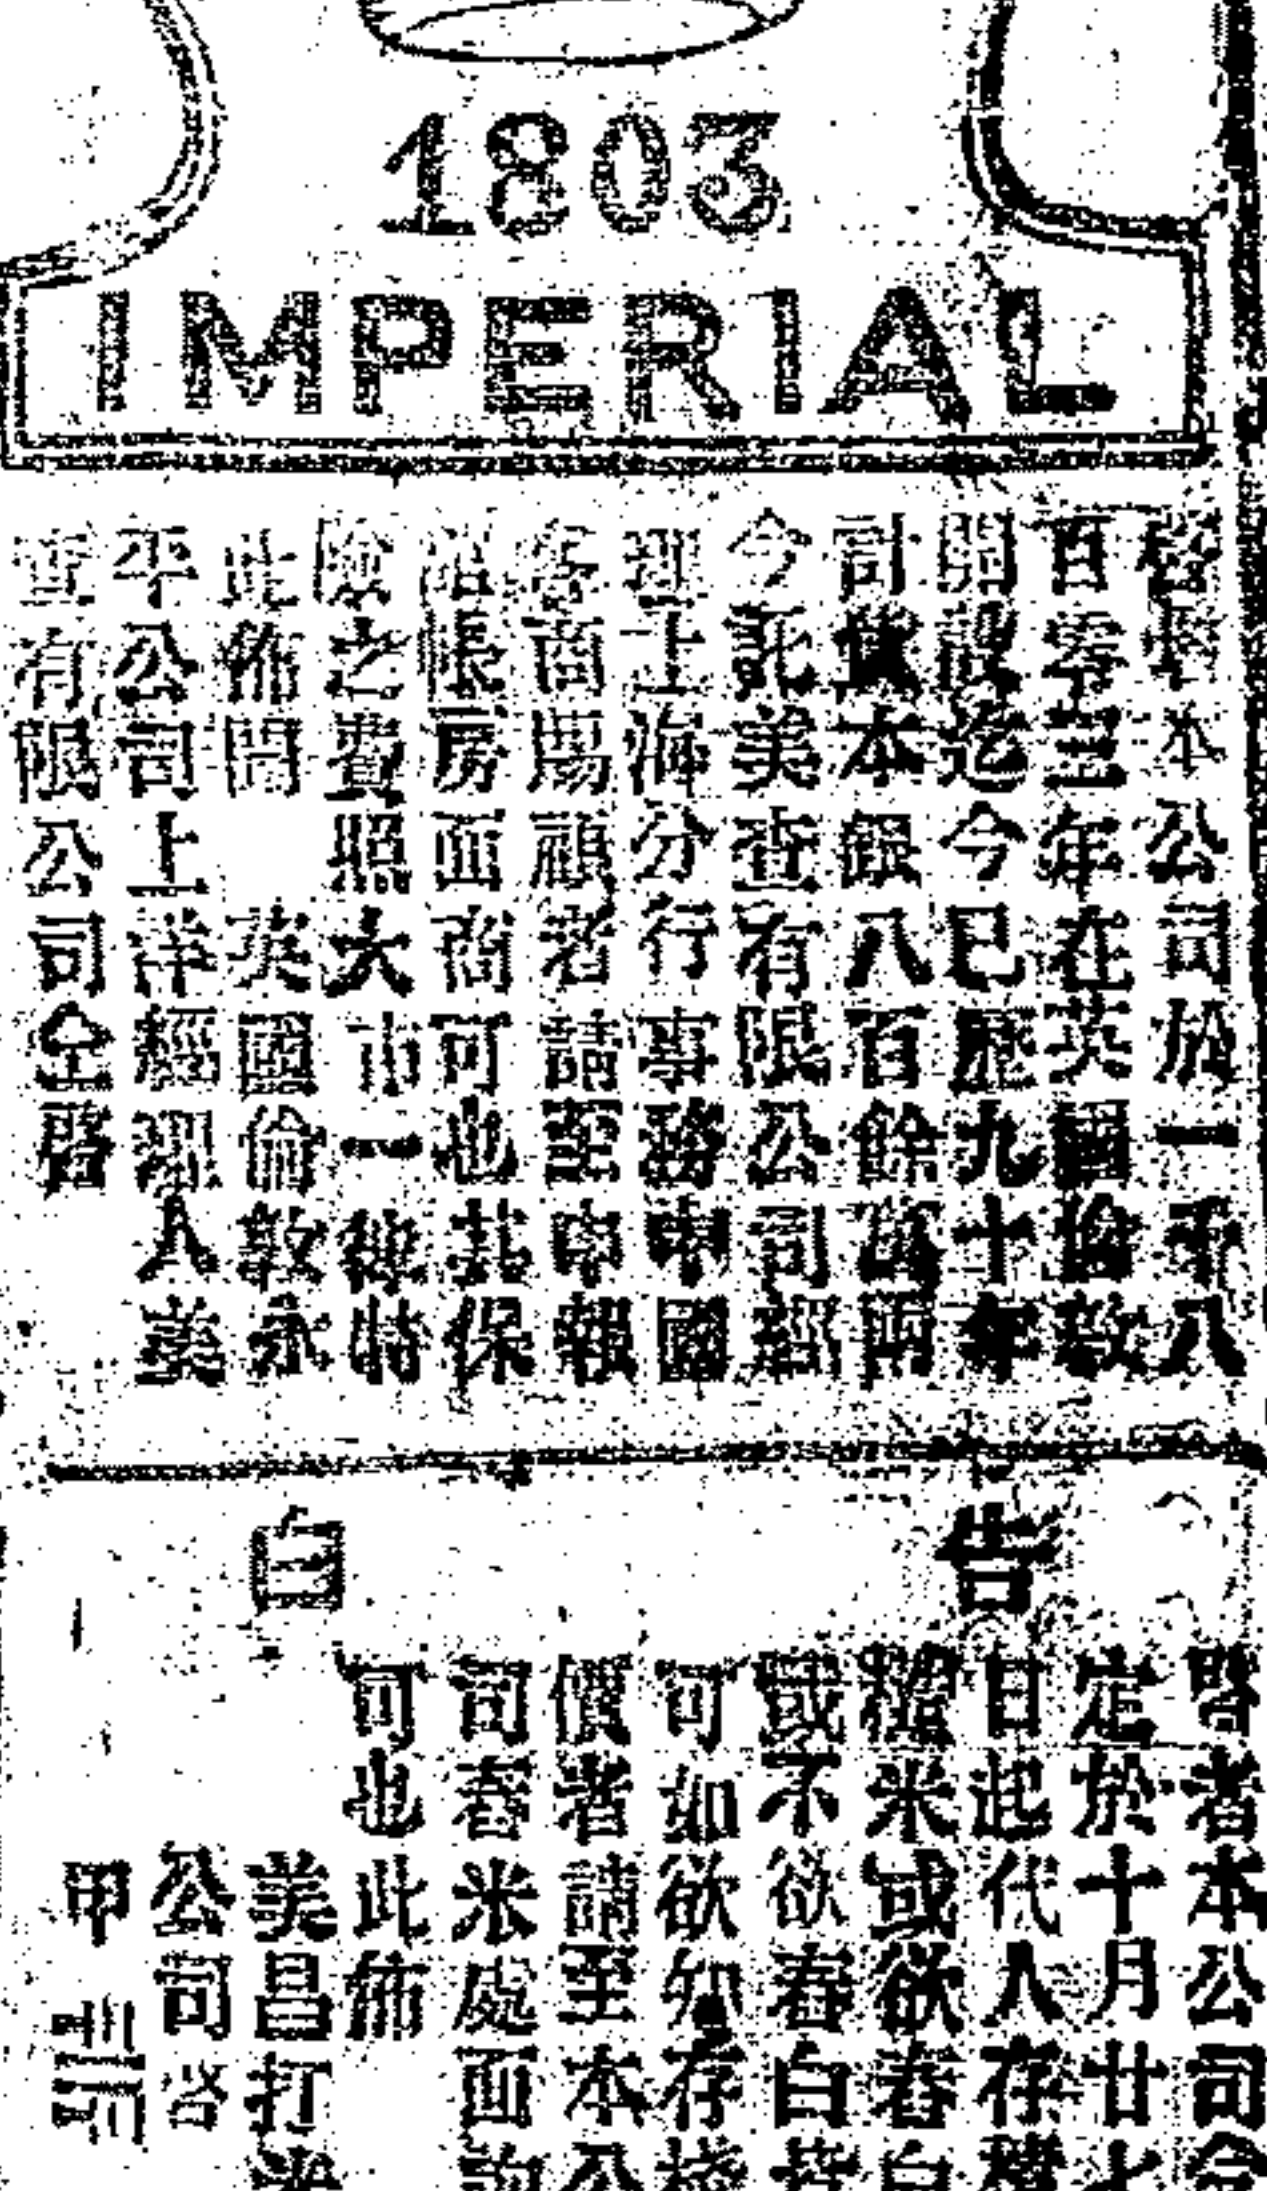 1803
IMPERIAL
本公司於一千八
百零三年在英國倫敦
開設迄今已歷九十年
計資本銀八百餘萬兩
今託美查有限公司經
理上海分行事務中國
各商賜顧者請至申報
館帳房面商可也其保
險之費照大市一律特
此佈聞 英國倫敦永
平公司上洋經理人美
查有限公司仝啓
告白
啓者本公司今
定於十月廿七
日起代人存
糙米或欲舂白
或不欲舂白
可如欲知存棧
價者請至本公
司舂米處面詢
可也此佈
美昌打米
公司啓
甲